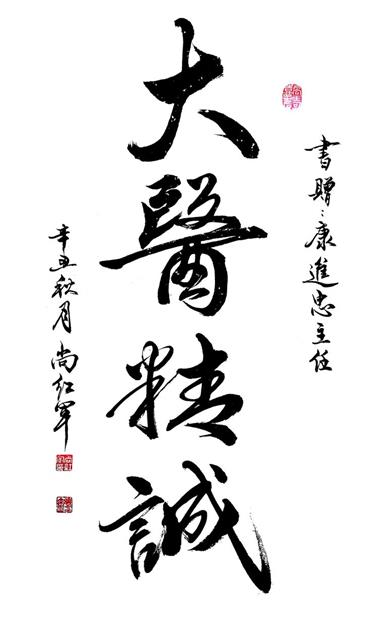 書贈：康進忠主任
大醫精誠
辛丑秋月尚紅軍